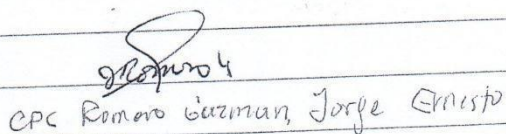 CPC Romero Guzman, Jorge Ernesto